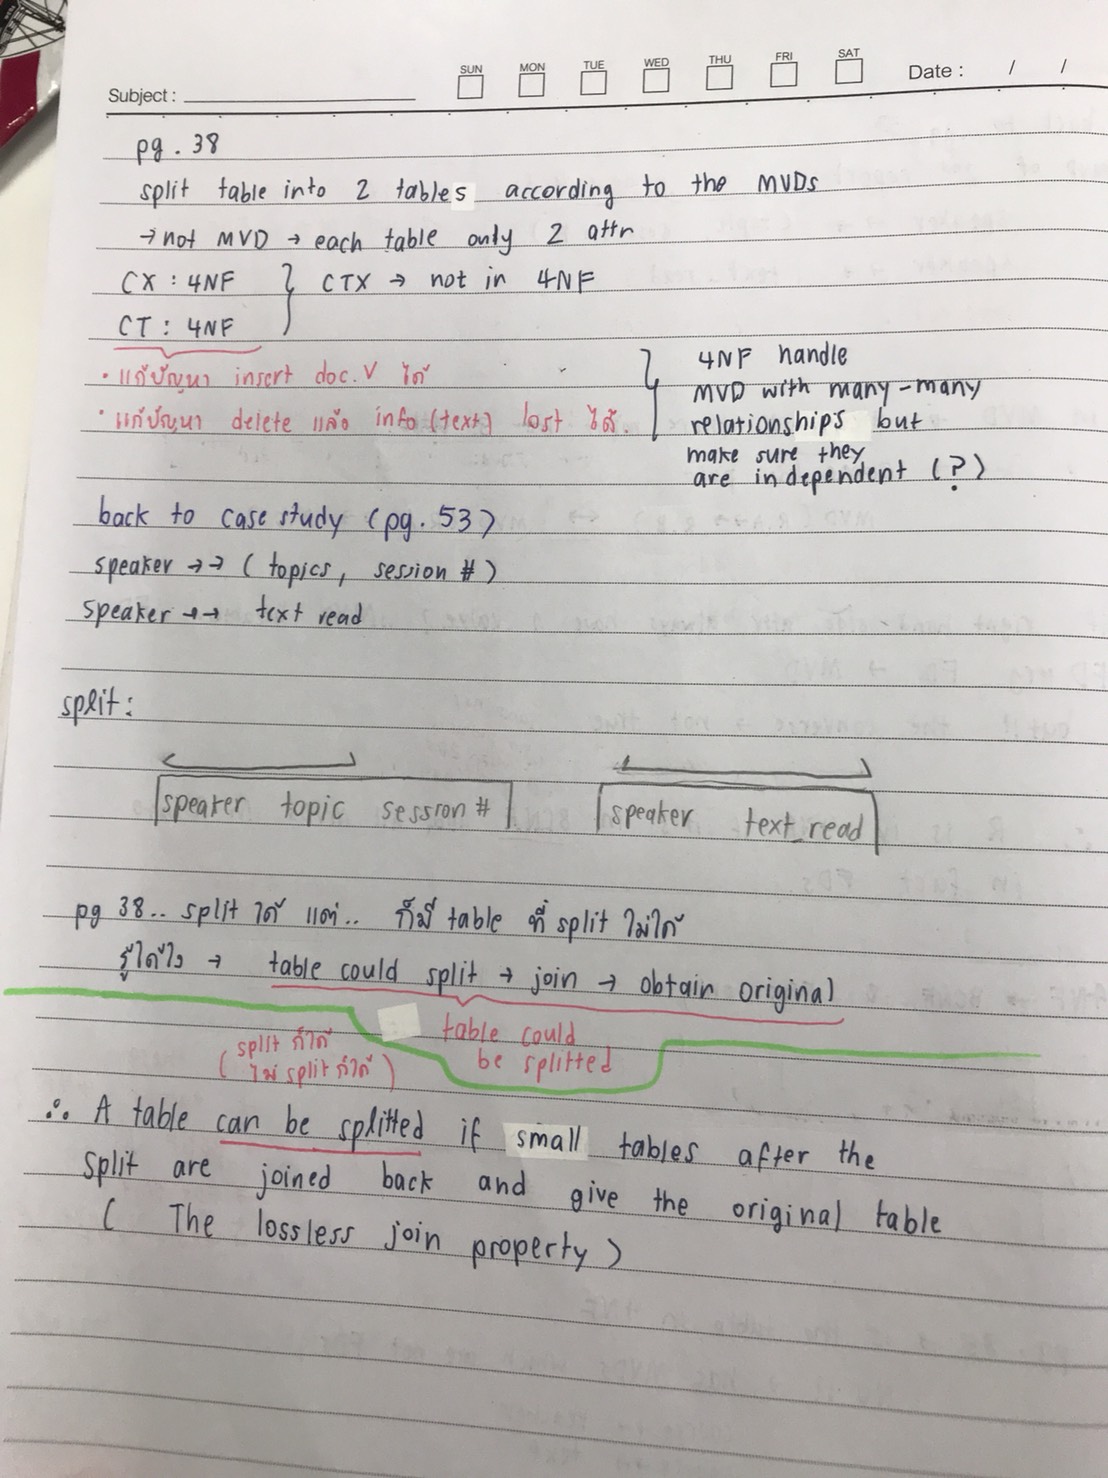 Subject :
SUN MON TUE WED THU FRI SAT
Date : / /
pg. 38
split table into 2 tables according to the MVDs
→ not MVD → each table only 2 attr
CX : 4NF
CT : 4NF
} CTX → not in 4NF
• แก้ปัญหา insert doc. V ได้
• แก้ปัญหา delete แล้ว info (text) lost ได้.
} 4NF handle
MVD with many-many
relationships but
make sure they
are independent (?)
back to case study (pg. 53)
speaker →→ ( topics, session # )
speaker →→ text read
split:
speaker topic session #
speaker text_read
pg 38.. split ได้ แต่.. ก็มี table ที่ split ไม่ได้
รู้ได้ไง → table could split → join → obtain original
table could
be splitted
( split ก็ได้
ไม่ split ก็ได้ )
∴ A table can be splitted if small tables after the
split are joined back and give the original table
( The lossless join property )